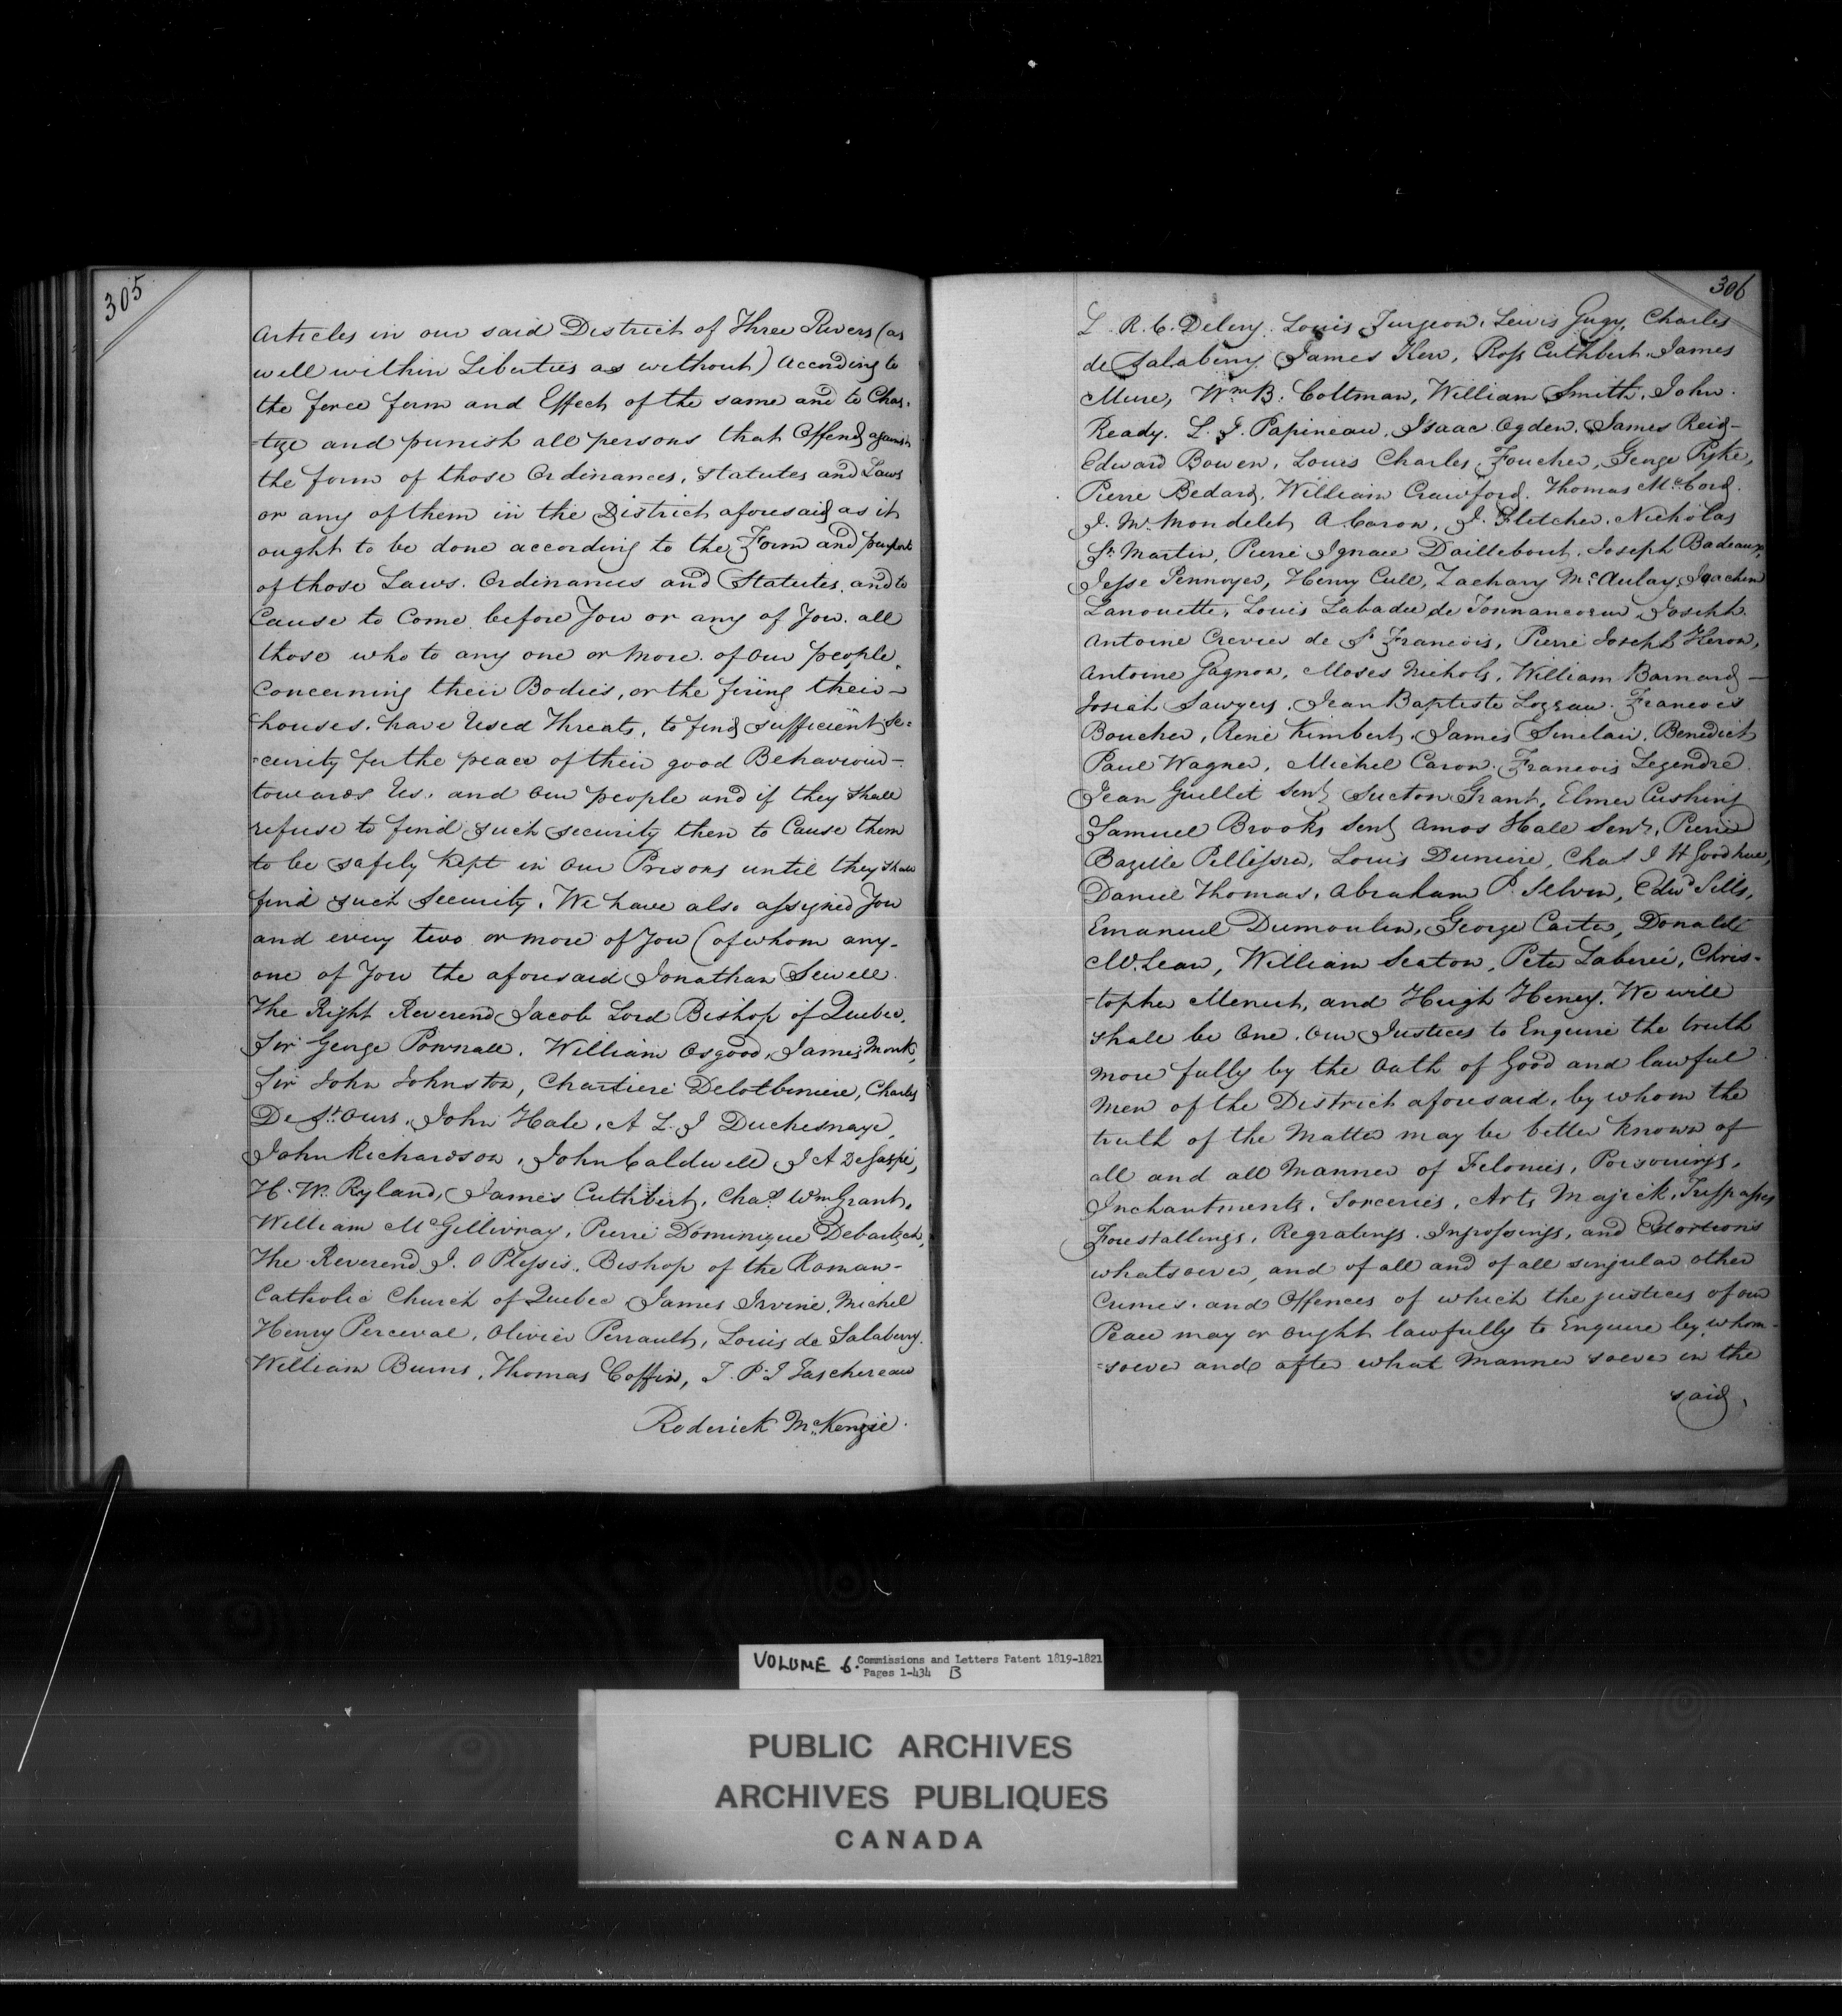 305
Articles in our said District of Three Rivers (as
well within Liberties as without) According to
the force form and Effect of the same and to Chas-
-tize and punish all persons that Offend against
the form of those Ordinances, Statutes and Laws
or any of them in the District aforesaid as it
ought to be done according to the Form and purport
of those Laws. Ordinances and Statutes. and to
Cause to Come before You or any of You. all
those who to any one or more. of our people,
Concerning their Bodies, or the firing their -
houses. have Used Threats, to find sufficient Se=
-curity for the peace of their good Behaviour -
towards Us. and our people and if they Shall
refuse to find such security then to Cause them
to be safely Kept in our Prisons until they Shall
find such Security. We have also assigned You
and every two or more of You (of whom any-
one of You the aforesaid Jonathan Sewell.
The Right Reverend Jacob Lord Bishop of Quebec.
Sir George Pownall. William Osgood, James Monk,
Sir John Johnston, Chartiere Delotbiniere, Charles
De St. Ours. John Hale. A L. J Duchesnaye,
John Richardson, John Caldwell J A DeGaspé,
H. W. Ryland, James Cuthbert. Chas. Wm Grant,
William McGillivray, Pierre Dominique Debartzch,
The Reverend J. O Plessis. Bishop of the Roman-
Catholic Church of Quebec James Irvine. Michel
Henry Perceval, Olivier Perrault, Louis de Salaberry.
William Burns, Thomas Coffin, T. P. J Taschereau
Roderick McKenzie.
306
L. R. C. Delery. Louis Turgeon. Lewis Gugy, Charles
de Salaberry James Kerr, Ross Cuthbert. James
Mure, Wm B. Coltman, William Smith. John.
Ready. L. J. Papineau. Isaac Ogden. James Reid-
Edward Bowen, Louis Charles Foucher, George Pyke,
Pierre Bedard, William Crawford. Thomas McCord.
J. M. Mondelet, A Caron. J. Fletcher. Nicholas
St. Martin, Pierre Ignace Daillebout. Joseph Badeaux,
Jesse Pennoyer, Henry Cull, Zachary McAulay, Joachim
Lanouette, Louis Labadie de Tonnancour Joseph
Antoine Crevier de St Francois, Pierre Joseph Heron,
Antoine Gagnon, Moses Nichols, William Barnard -
Josiah Sawyers, Jean Baptiste Lozeau. Francois
Boucher, René Kimbert. James Sinclair. Benedict
Paul Wagner, Michel Caron. Francois Legendre.
Jean Guillet Senr Sueton Grant, Elmer Cushing
Samuel Brooks Senr Amos Hall Senr, Pierre
Bazille Pellissier, Louis Duniere, Chas J H Goodhue,
Daniel Thomas, Abraham P. Silver, Edwd Sills,
Emanuel Dumoulin, George Carter, Donald
McLean, William Seaton, Peter Laberée, Chris-
-topher Menut, and Hugh Heney. We will
Shall be One. Our Justices to Enquire the truth
more fully by the Oath of Good and lawful
Men of the District aforesaid, by whom the
truth of the Matter may be better known of
all and all Manner of Felonies, Poisonings,
Inchantments, Sorceries, Arts Majick, Trespasses
Forestallings, Regratings. Ingrossings, and Extortions
whatsoever, and of all and of all singular other
Crimes. and Offences of which the justices of our
Peace may or Ought lawfully to Enquire by whom-
-soever and after what Manner soever in the
said,
VOLUME 6. Commissions and Letters Patent 1819-1821
Pages 1-434 B
PUBLIC ARCHIVES
ARCHIVES PUBLIQUES
CANADA